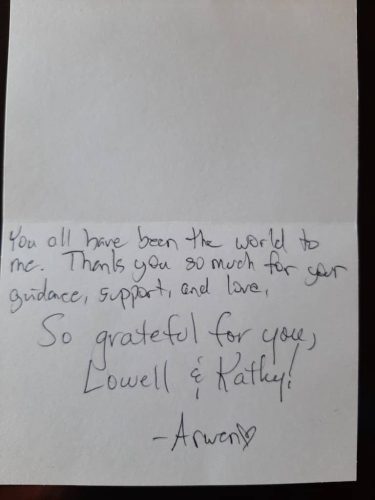 You all have been the world to
me. Thanks you so much for your
guidance, support, and love.
So grateful for you,
Lowell & Kathy!
-Arwen♡